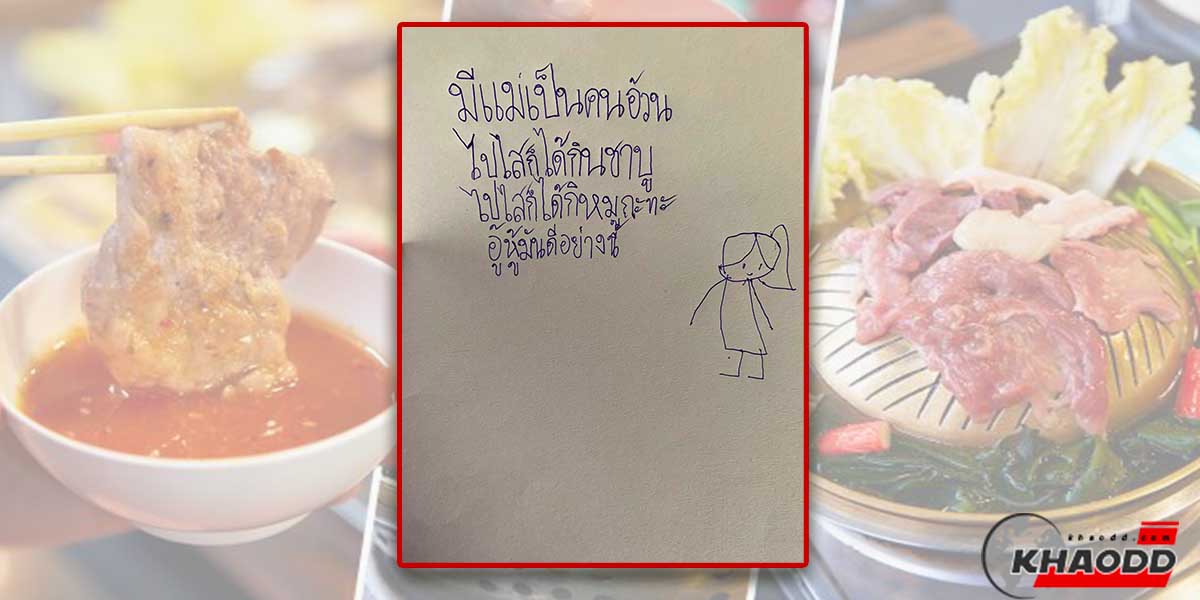 มีแม่เป็นคนอ้วน
ไปไสก็ได้กินชาบู
ไปไสก็ได้กิหมูกะทะ
อู้หู้มันดีอย่างนี้
khaodd.com
KHAODD